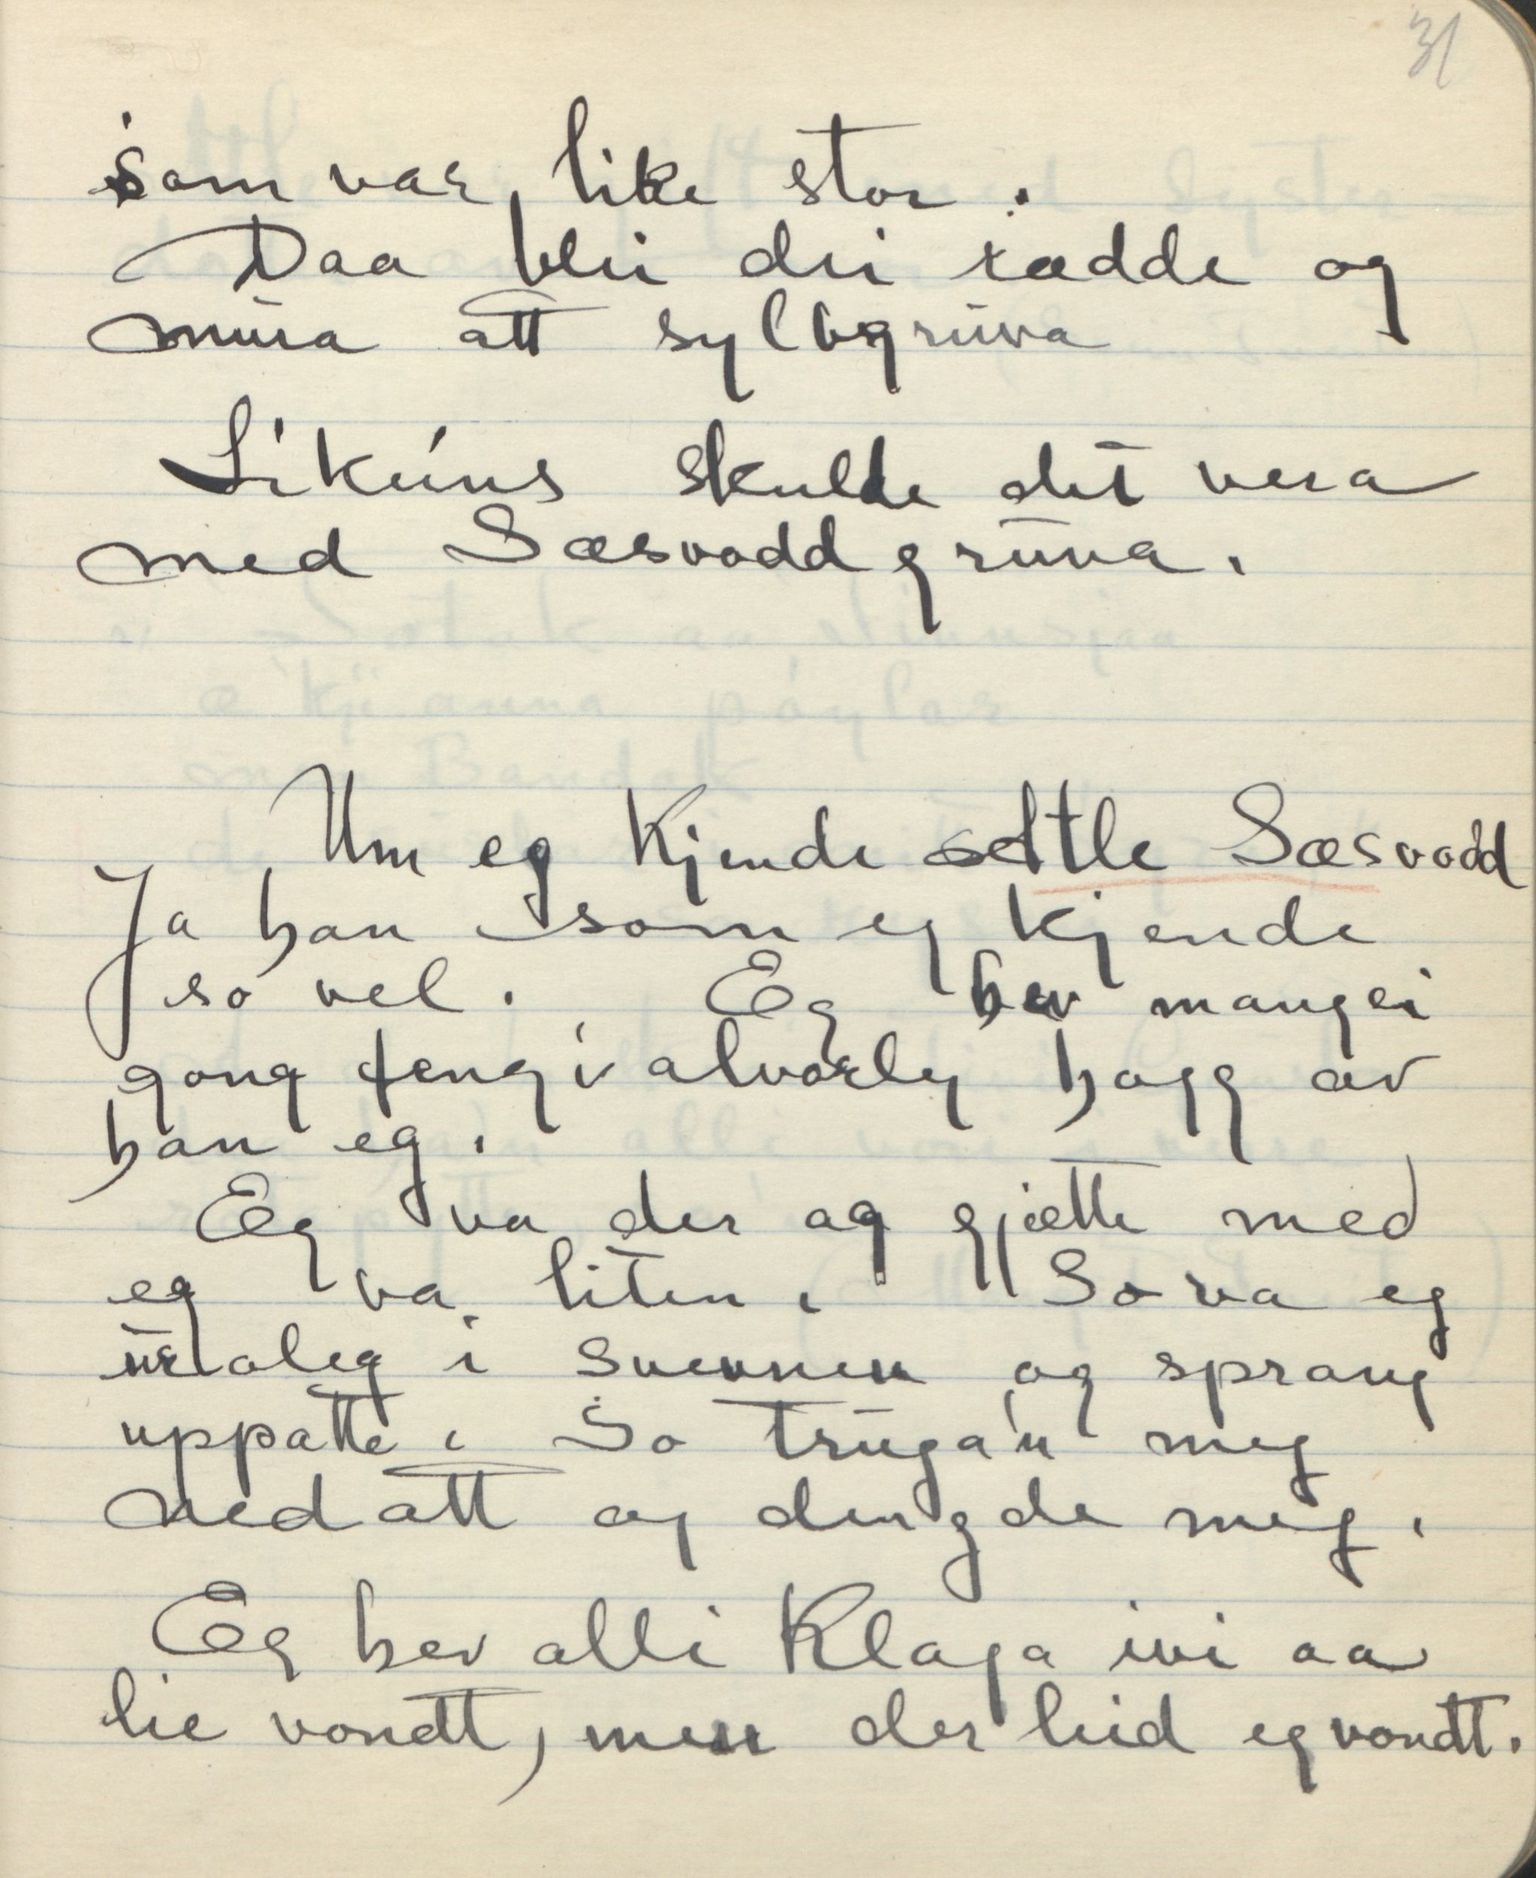 31
som var like stor.
Daa blei dei rædde og
mura att sylbgruva
Likeins skulde det vera
med Sæsvoddgruva.
Um eg kjende Sæsvodd
Ja han som eg kjende
so vel. Eg hev mangei
gong fengi alvorleg hogg av
han eg.
Eg va der og gjætte med
eg va liten. So va eg
uroleg i svevnen og sprang
uppatte. So truga'n meg
nedatt og dengde meg.
Eg hev alli klaga ivi aa
lie vondt, men der leid eg vondt.